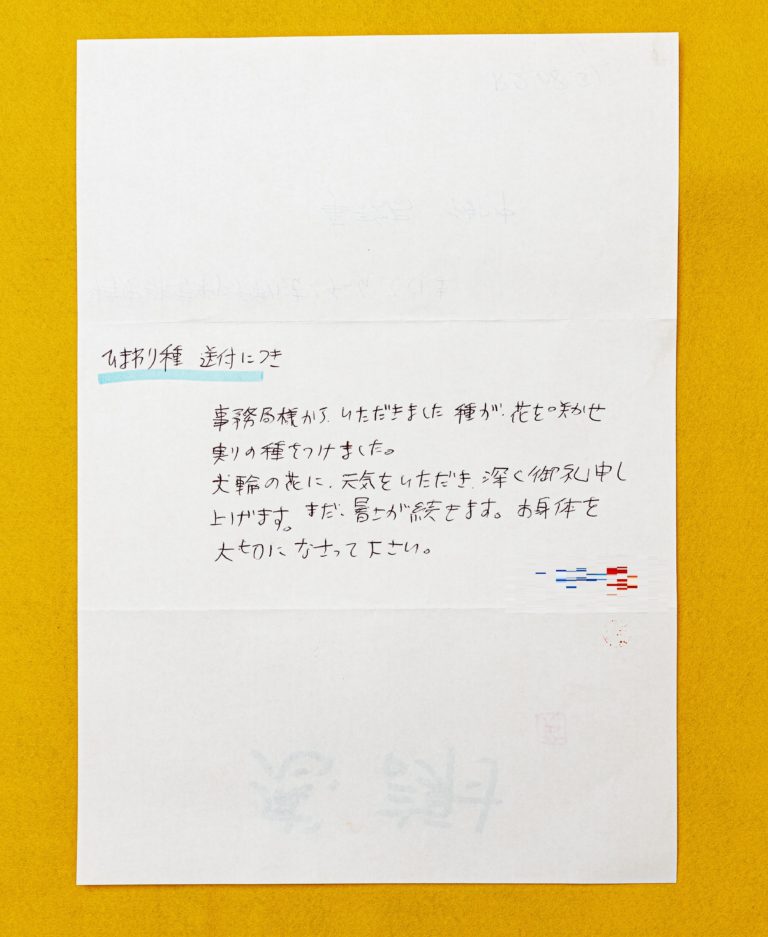 ひまわり種 送付につき
事務局様から、いただきました 種が、花を咲かせ
実りの種をつけました。
大輪の花に、元気をいただき、深く御礼申し
上げます。まだ、暑さが続きます。お身体を
大切になさって下さい。